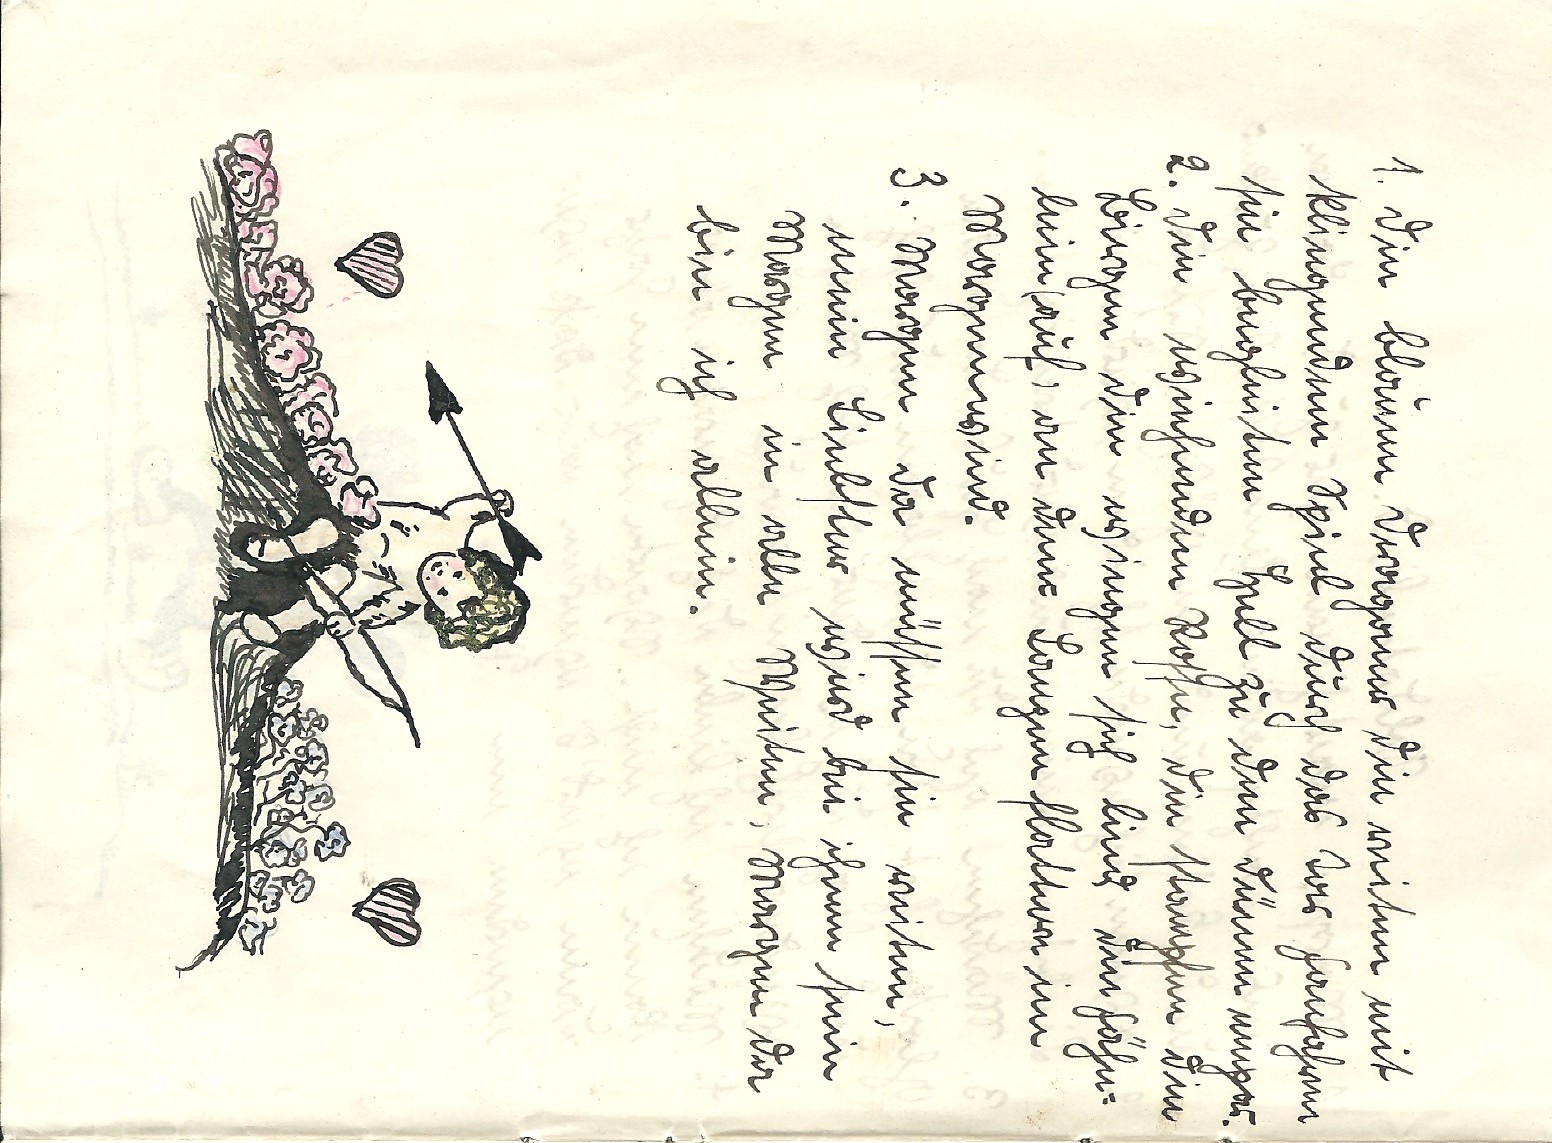 1. Die blauen Dragoner die reiten mit
klingendem Spiel durch das Tor Fanfahren
sie begleiten Hell zu den Dünen empor.
2. Die wiehenden Rosse, die stampfen die
Birgen die wiegen sich lind die Fähn=
lein (auf) an den Lanzen flattern im
Morgenwind.
3. Morgen da müssen sie reiten,
mein Liebster wird bei ihnen sein
Morgen in alle Weiten, Morgen da
bin ich allein.